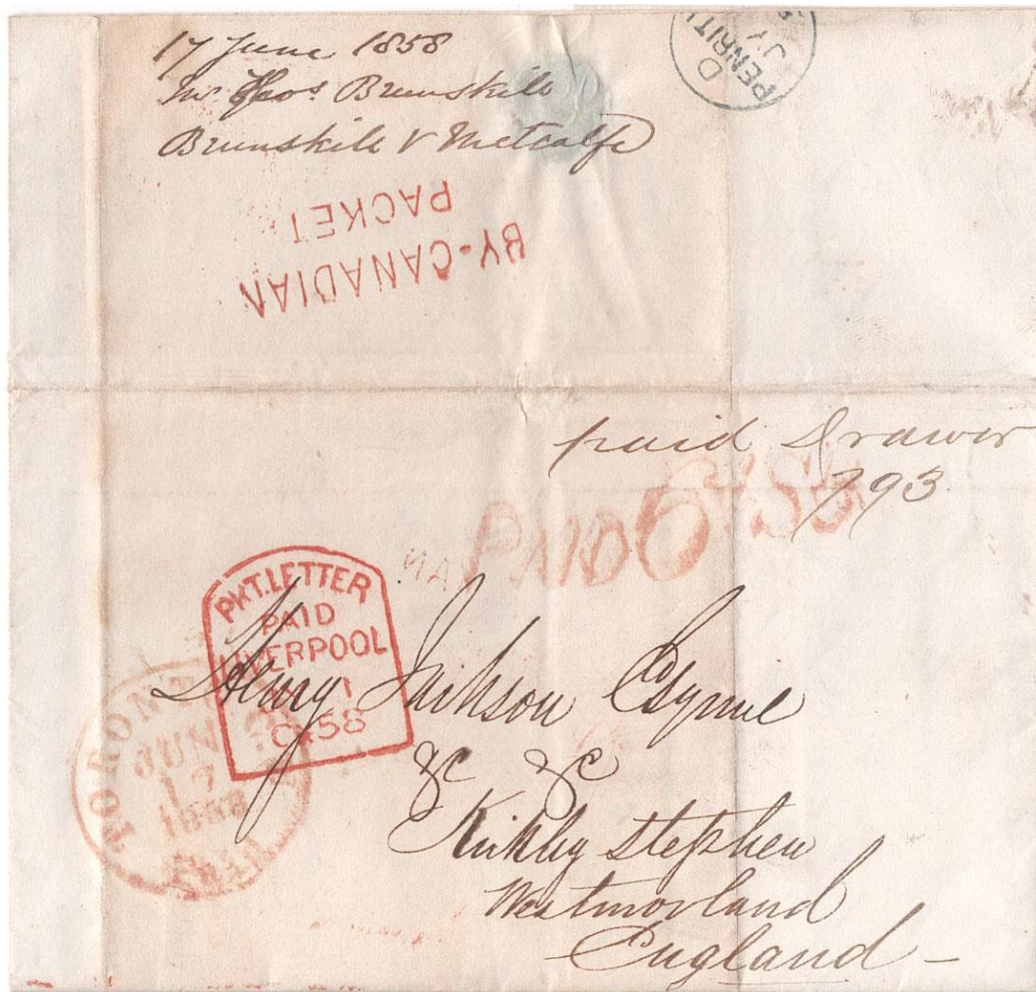 17 June 1858
Mr Thos. Brunskill
Brunskill v Metcalfe
D
PENRITH
JY
BY-CANADIAN
PACKET
paid Drawer
793
PAID 6d Stg
PKT. LETTER
PAID
LIVERPOOL
1
58
TORONTO
JUN
17
1858
Henry Jackson Esquire
&c &c
Kirkby Stephen
Westmorland
England